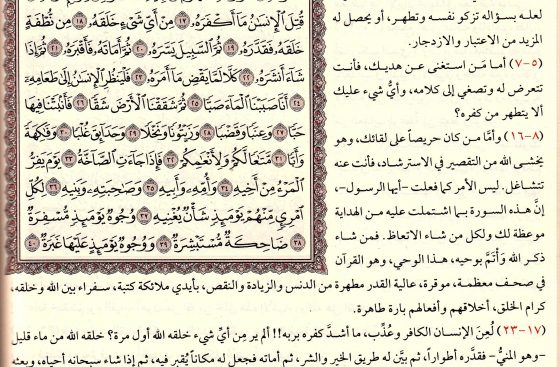 قُتِلَ ٱلْإِنسَٰنُ مَآ أَكْفَرَهُۥ ١٧ مِنْ أَيِّ شَىْءٍ خَلَقَهُۥ ١٨ مِن نُّطْفَةٍ
خَلَقَهُۥ فَقَدَّرَهُۥ ١٩ ثُمَّ ٱلسَّبِيلَ يَسَّرَهُۥ ٢٠ ثُمَّ أَمَاتَهُۥ فَأَقْبَرَهُۥ ٢١ ثُمَّ إِذَا
شَآءَ أَنشَرَهُۥ ٢٢ كَلَّا لَمَّا يَقْضِ مَآ أَمَرَهُۥ ٢٣ فَلْيَنظُرِ ٱلْإِنسَٰنُ إِلَىٰ طَعَامِهِۦٓ
٢٤ أَنَّا صَبَبْنَا ٱلْمَآءَ صَبًّا ٢٥ ثُمَّ شَقَقْنَا ٱلْأَرْضَ شَقًّا ٢٦ فَأَنۢبَتْنَا فِيهَا
حَبًّا ٢٧ وَعِنَبًا وَقَضْبًا ٢٨ وَزَيْتُونًا وَنَخْلًا ٢٩ وَحَدَآئِقَ غُلْبًا ٣٠ وَفَٰكِهَةً
وَأَبًّا ٣١ مَّتَٰعًا لَّكُمْ وَلِأَنْعَٰمِكُمْ ٣٢ فَإِذَا جَآءَتِ ٱلصَّآخَّةُ ٣٣ يَوْمَ يَفِرُّ
ٱلْمَرْءُ مِنْ أَخِيهِ ٣٤ وَأُمِّهِۦ وَأَبِيهِ ٣٥ وَصَٰحِبَتِهِۦ وَبَنِيهِ ٣٦ لِكُلِّ
ٱمْرِئٍ مِّنْهُمْ يَوْمَئِذٍ شَأْنٌ يُغْنِيهِ ٣٧ وُجُوهٌ يَوْمَئِذٍ مُّسْفِرَةٌ
٣٨ ضَاحِكَةٌ مُّسْتَبْشِرَةٌ ٣٩ وَوُجُوهٌ يَوْمَئِذٍ عَلَيْهَا غَبَرَةٌ ٤٠
لعله بسؤاله تزكو نفسه وتطهر، أو يحصل له
المزيد من الاعتبار والازدجار.
(٥-٧) أما مَن استغنى عن هديك، فأنت
تتعرض له وتصغي إلى كلامه، وأيُّ شيء عليك
ألا يتطهر من كفره؟
(٨-١٦) وأمَّا من كان حريصاً على لقائك، وهو
يخشى الله من التقصير في الاسترشاد، فأنت عنه
تتشاغل. ليس الأمر كما فعلت -أيها الرسول-،
إنَّ هذه السورة بما اشتملت عليه من الهداية
موعظة لك ولكل من شاء الاتعاظ. فمن شاء
ذكر الله وَأْتَمَّ بوحيه، هذا الوحي، وهو القرآن
في صحف معظمة، موقرة، عالية القدر مطهرة من الدنس والزيادة والنقص، بأيدي ملائكة كتبة، سفراء بين الله وخلقه،
كرام الخلق، أخلاقهم وأفعالهم بارة طاهرة.
(١٧-٢٣) لُعِنَ الإنسان الكافر وعُذِّب، ما أشدَّ كفره بربه!! ألم ير مِن أيِّ شيء خلقه الله أول مرة؟ خلقه الله من ماء قليل
-وهو المنيُّ- فقدَّره أطواراً، ثم بيَّن له طريق الخير والشر، ثم أماته فجعل له مكاناً يُقبر فيه، ثم إذا شاء سبحانه أحياه، وبعثه